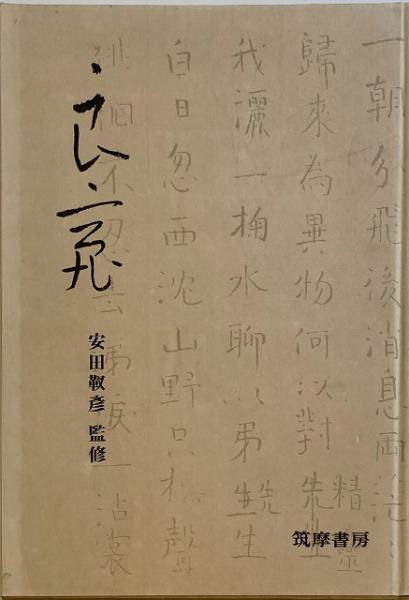 良寛
安田靫彦 監修
筑摩書房
一朝分飛後消息両茫〻
歸來為異物何以對先生
精靈
我灑一掬水聊以弔先生
白日忽西沈山野只松聲
徘徊不忍去涕淚一沾裳